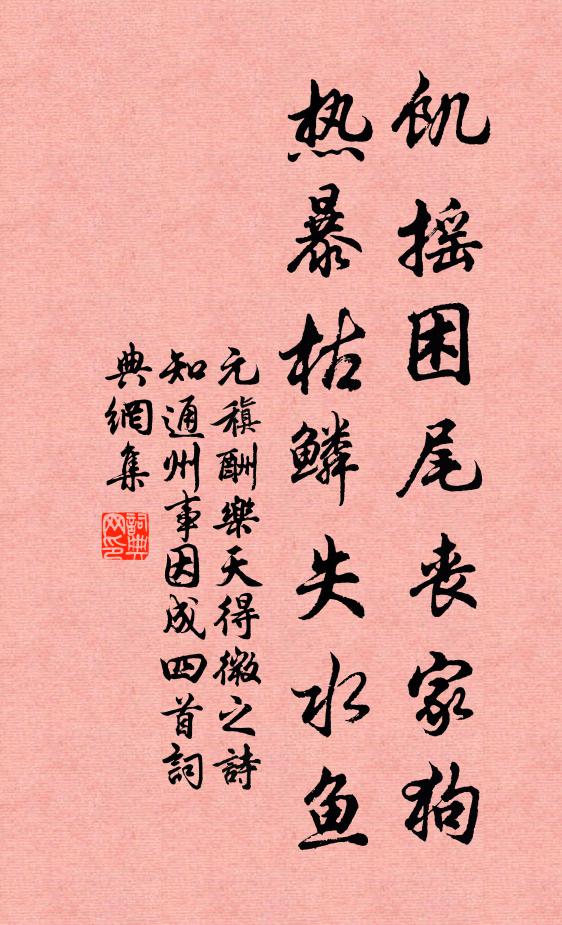 飢摇困尾丧家狗
热暴枯鳞失水鱼
元稹酬樂天得微之詩
知通州事因成四首詞
典網集
詞典网印